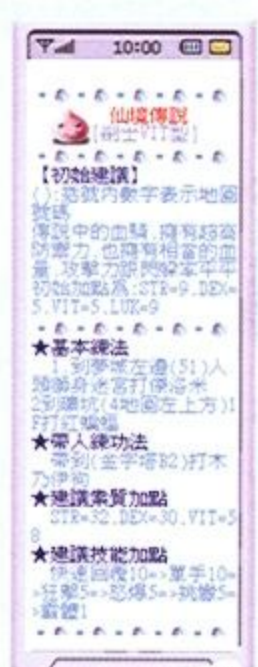 10:00
仙境傳說
[劍士VIT型]
【初始建議】
():括號內數字表示地圖
號碼
傳說中的血騎,擁有超高
防禦力,也擁有相當的血
量,攻擊力跟閃躲率平平
初始加點為:STR=9.DEX=
5.VIT=5.LUK=9
★基本練法
1.到夢城左邊(51)人
面獅身迷宮打停洛米
2到礦坑(4地圖左上方)1
F打紅蝙蝠
★帶人練功法
帶到(金字塔B2)打木
乃伊狗
★建議素質加點
STR=32.DEX=30.VIT=5
8
★建議技能加點
快速回復10=>單手10=
>狂擊5=>怒爆5=>挑釁5=
>霸體1